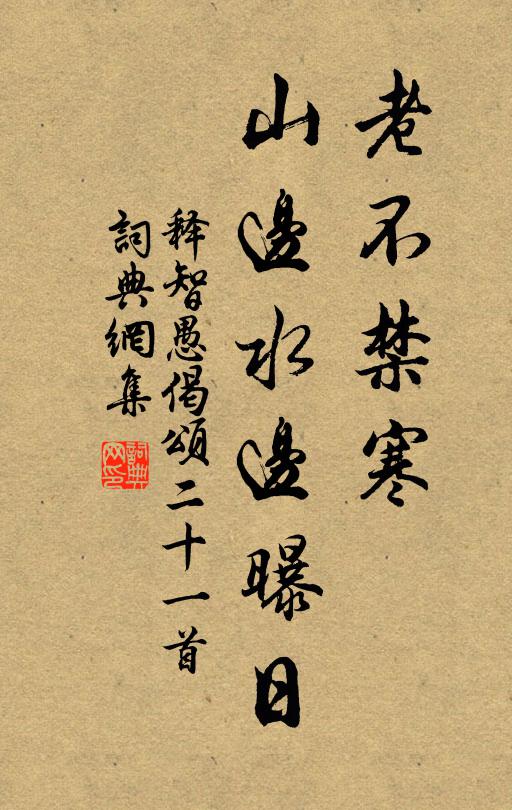 老不禁寒
山邊水邊曝日
释智愚偈頌二十一首
詞典網集
詞典網印